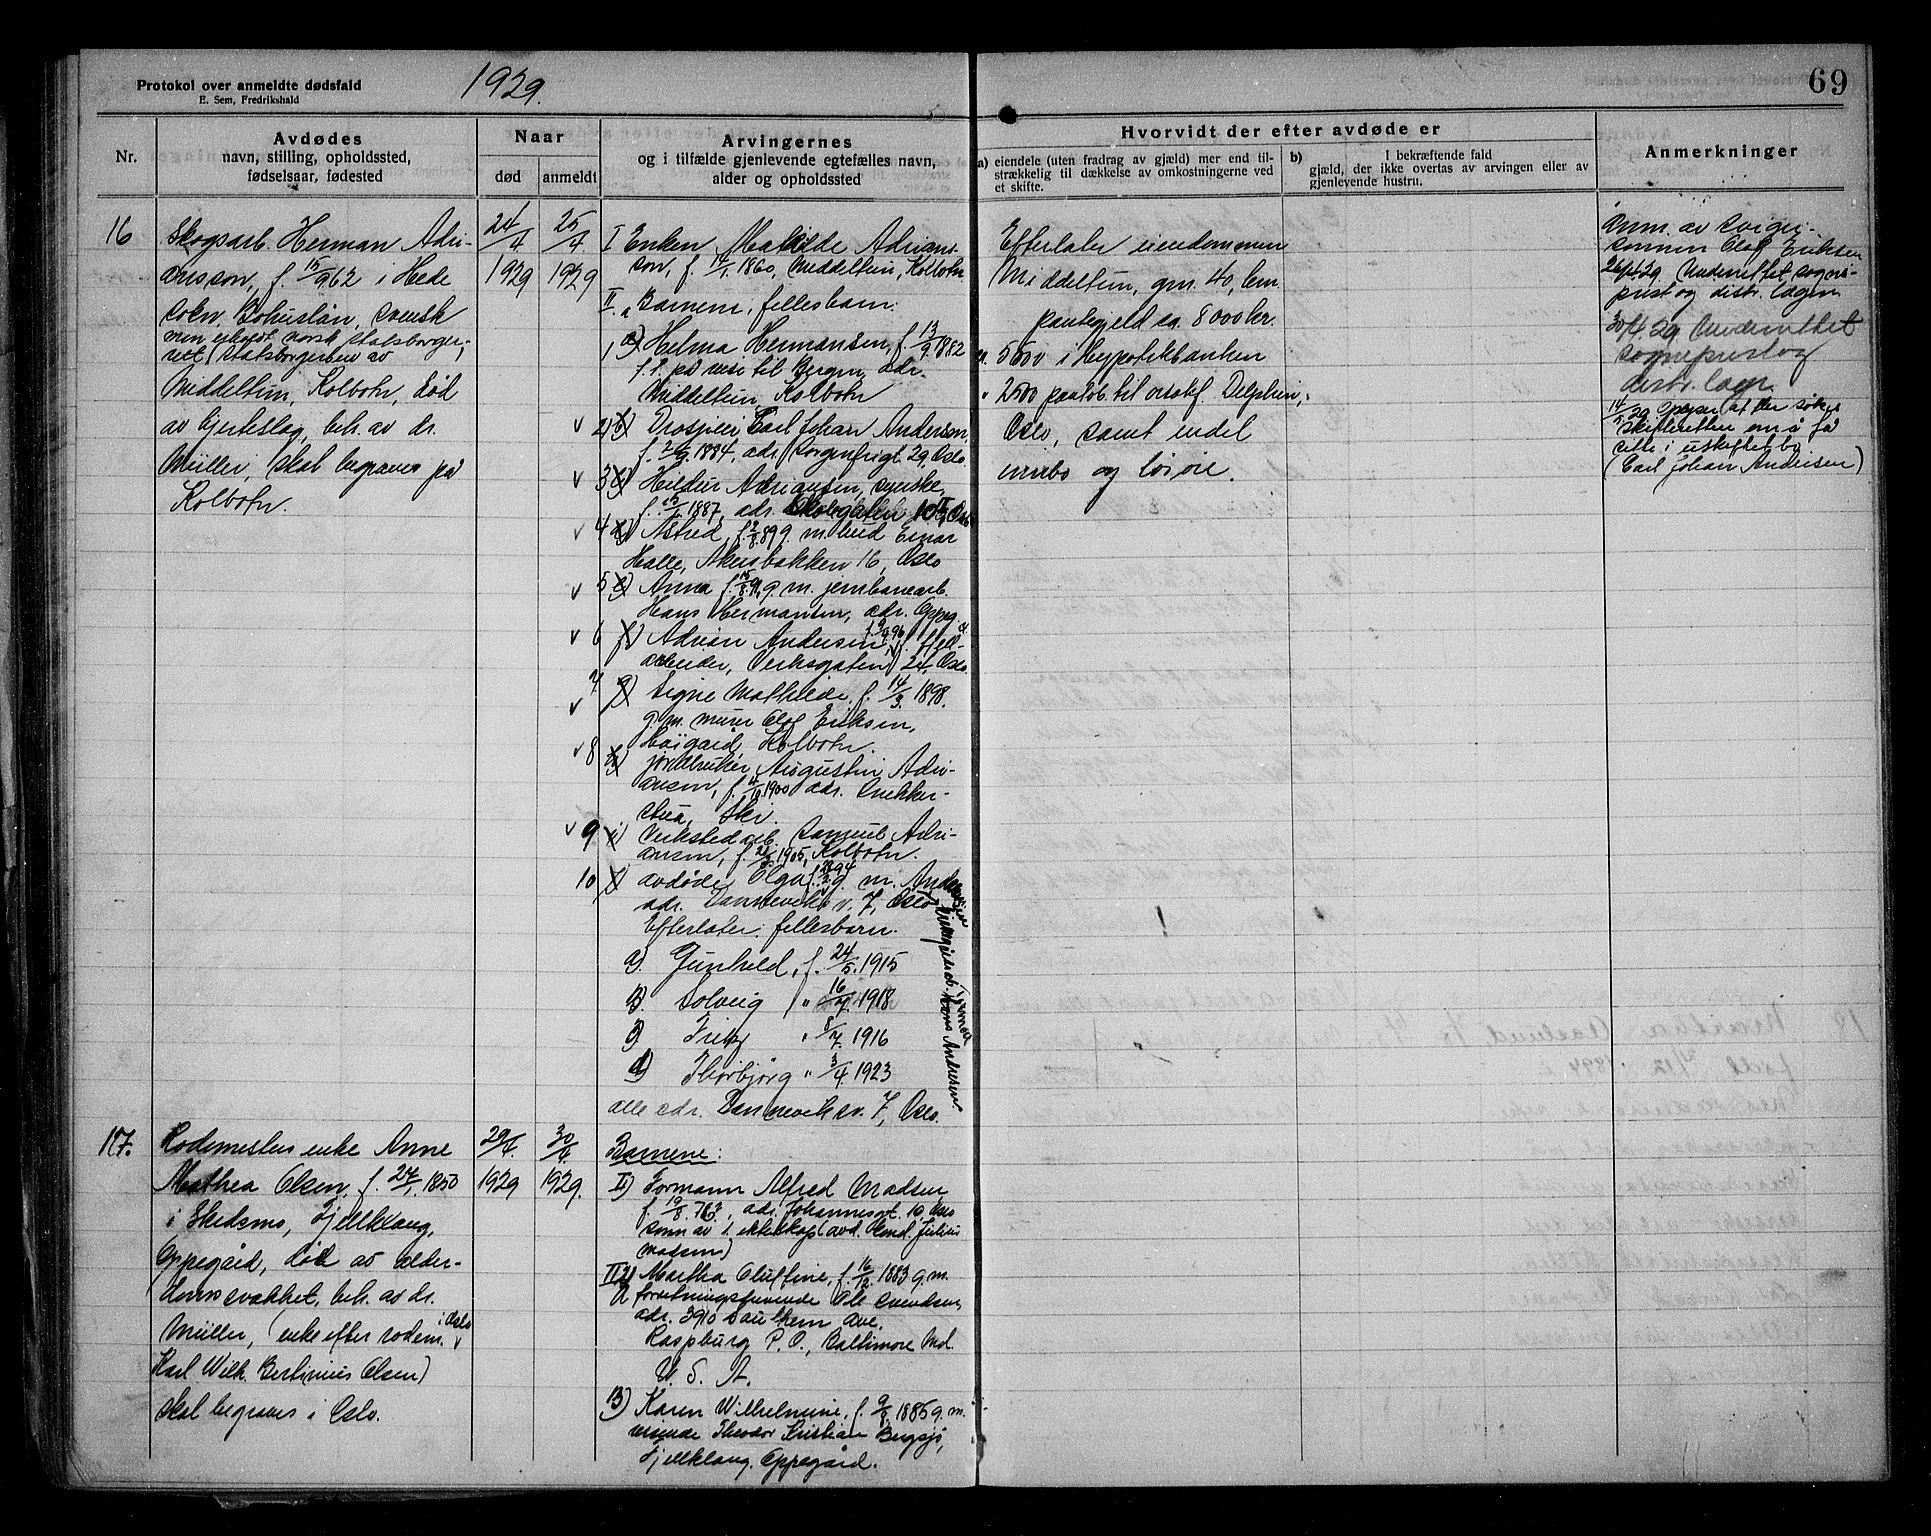 Protokol over anmeldte dødsfald
E. Sem, Fredrikshald
1929.
69
Nr.
Avdødes
navn, stilling, opholdssted,
fødselsaar, fødested
Naar
død
anmeldt
Arvingernes
og i tilfælde gjenlevende egtefælles navn,
alder og opholdssted
Hvorvidt der efter avdøde er
a) eiendele (uten fradrag av gjæld) mer end til-
strækkelig til dækkelse av omkostningerne ved
et skifte.
b) I bekræftende fald
gjæld, der ikke overtas av arvingen eller av
gjenlevende hustru.
Anmerkninger
16
Skogsarb. Herman Adri-
ansson, f. 15/9 62 i Hede
sokn, Bohuslän, svensk
men norsk statsborger-
rett (Statsborgerbrev av
Middeltun, Kolbotn, død
av hjerteslag, beh. av dr.
Müller, skal begraves på
Kolbotn.
24/4
1929
25/4
1929
I Enken Mathilde Adrians-
son, f. 14/1 1860, Middeltun, Kolbotn
II. Barnene, fellesbarn:
1 a) Helma Hermansen, f. 13/9 1882
f. t. på reise til Bergen, adr.
Middeltun, Kolbotn
v 2 b) Drosjeeier Carl Johan Andersen
f. 2/9 1884, adr. Sorgenfrigt 29, Oslo
v 3 c) Hildur Adriansen, syerske,
f. 15/1 1887, adr. 10 II, Oslo
v 4 d) Astrid, f. 2/8 89 g. m. bud Einar
Halle, Akersbakken 16, Oslo
v 5 e) Anna f. 15/8 91, g. m. jernbanearb.
Hans Hermansen, adr. Oppeg.
v 6 f) Adrian Andersen, f. 9/4 96
arbeider, Verksgaten 24, Oslo
7 v g) Signe Mathilde, f. 14/3. 1898.
g. m. murer Olof Eriksen,
Høigård, Kolbotn.
v 8 h) Jordbruker Augustin Adri-
ansen, f. 4/10 1900 adr. Snekker-
stua, Ski.
v 9 i) Verkstedarb. Samuel Adri-
ansen, f. 1905, Kolbotn.
10 j) avdøde Olga, f. 94 g. m. Andersen
adr. Dannevikbv. 7, Oslo
Efterlater fellesbarn.
Hans Andresen
a) Gunhild, f. 24/5. 1915
b) Solveig " 16/4. 1918
c) Fritz " 8/7. 1916
d) Thorbjørg " 3/4. 1923
alle adr. Danneviksv. 7, Oslo.
Efterlater eiendommen
Middeltun, gnr. 40, bnr.
pantegjeld ca. 8000 kr.
5500 i hypotekbanken
" 2500 pantob. til Delphin,
Oslo, samt endel
innbo og løsøre.
Anm. av sviger-
sønnen Olof Eriksen
26/4 29 Underrettet sogne-
prest og distr. lægen
30/4 29 Underrettet
sogneprest og
distr. lægen
14/5 29 at der søkes
skifteretten om å få
sitte i uskiftet bo
(Carl Johan Andersen)
17.
Rodemester enke Anne
Mathea Olsen, f. 24/1. 1850
i Skedsmo, Fjellklang,
Oppegård, død av alder-
domssvakhet, beh. av dr.
Müller, (enke efter rodem. i Oslo
Karl Wilh. Bertinius Olsen)
skal begraves i Oslo.
29/4
1929
30/4
1929.
Barnene:
I) Formann Alfred Madsen
f. 19/8. 76, adr. Johannesgt. 10 Oslo
sønn av 1. ekteskap (avd. Julius
Madsen)
II 2) Martha Oluffine, f. 16/12. 1883 g. m.
forretningsførende Ole Svendsen,
adr. 3910 Southern Ave,
Raspburg P. O., Baltimore Md.
U. S. A.
3) Karen Wilhelmine, f. 9/8. 1885 g. m.
reisende Theodor Kristian Bergsjø,
Fjellklang, Oppegård.